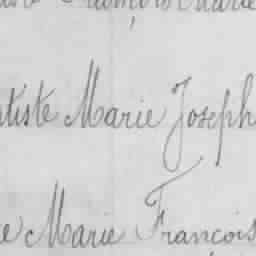 tiste Marie Joseph
e Marie François